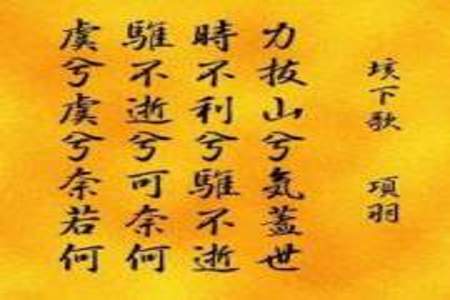 垓下歌 項羽
力拔山兮氣蓋世
時不利兮騅不逝
騅不逝兮可奈何
虞兮虞兮奈若何